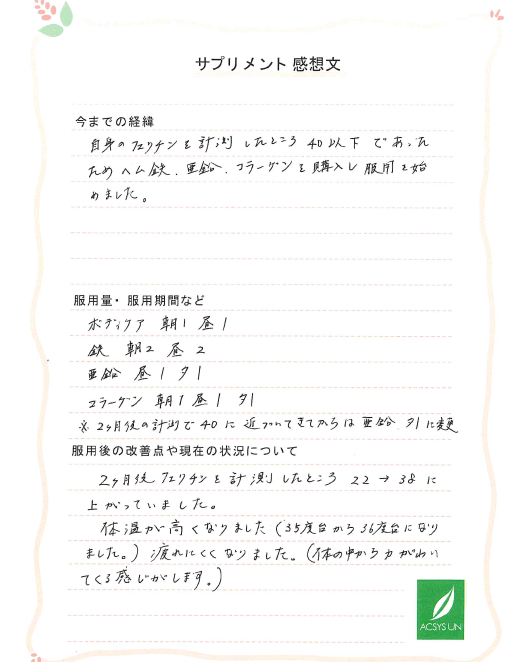 サプリメント 感想文
今までの経緯
自身のフェリチンを計測したところ 40以下であった
ためヘム鉄、亜鉛、コラーゲンを購入し服用を始
めました。
服用量・服用期間など
ボディケア 朝1 昼1
鉄 朝2 昼2
亜鉛 昼1 夕1
コラーゲン 朝1 昼1 夕1
※2ヶ月後の計測で40に近づいてきてからは亜鉛 夕1に変更
服用後の改善点や現在の状況について
2ヶ月後フェリチンを計測したところ 22→38に
上がっていました。
体温が高くなりました(35度台から36度台になり
ました。)疲れにくくなりました。(体の中から力がわい
てくる感じがします。)
ACSYS UN